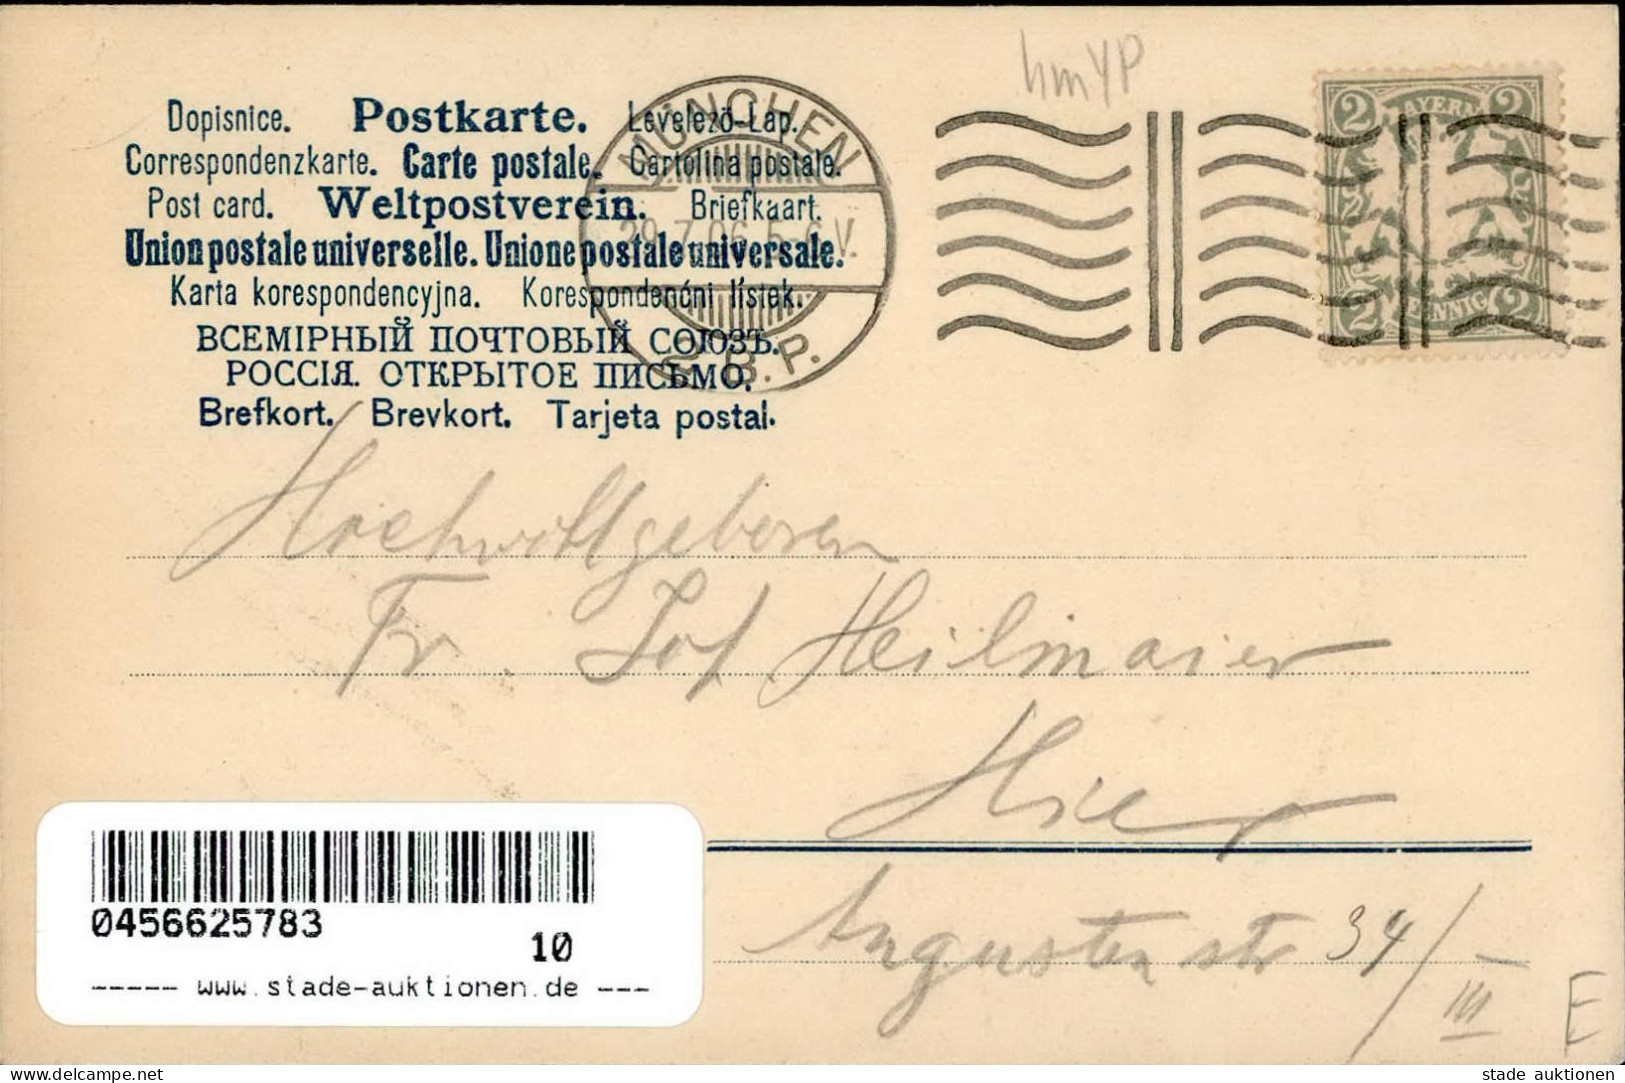 hmYP
Dopisnice. Postkarte. Levelező-Lap.
Correspondenzkarte. Carte postale. Cartolina postale.
Post card. Weltpostverein. Briefkaart.
Union postale universelle. Unione postale universale.
Karta korespondencyjna. Korespondenćni lístek.
ВСЕМІРНЫЙ ПОЧТОВЫЙ СОЮЗЪ.
РОССІЯ. ОТКРЫТОЕ ПИСЬМО.
Brefkort. Brevkort. Tarjeta postal.
MÜNCHEN
29.7.06. 5-6 V.
B.P.
2 BAYERN 2
2 PFENNIG 2
Hochwohlgeboren
Fr. Jos Heilmaier
Hier
Augustenstr 34/III
E
0456625783
10
----- www.stade-auktionen.de ---
www.delcampe.net
stade auktionen